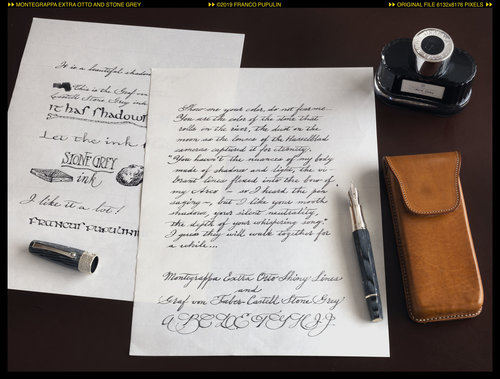 MONTEGRAPPA EXTRA OTTO AND STONE GREY
©2019 FRANCO PUPULIN
ORIGINAL FILE 6132x8176 PIXELS
It is a beautiful shadow
this is the Graf von
Castell Stone Grey ink
it has shadow
Let the ink
STONE GREY
ink
I like it a lot!
FRANCO PUPULIN
Show me your color, do not fear me
You are the color of the stone that
rolls in the river, the dust on the
moon as the lenses of the Hasselblad
cameras captured it for eternity.
"You haven't the nuances of my body
made of shadow and light, the vi-
brant lines flexed into the bow of
my Arco" – so I heard the pen
saying –, but I like your
shadows, your silent neutrality,
the depth of your whispering song."
I guess they will walk together for
a while...
Montegrappa Extra Otto Shiny Lines
and
Graf von Faber-Castell Stone Grey